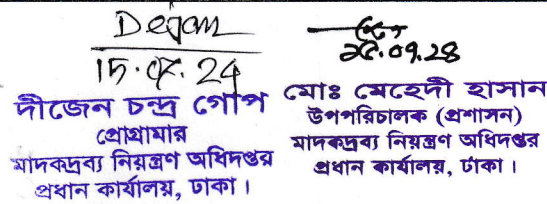 Dejom
15.07.24
দীজেন চন্দ্র গোপ
প্রোগ্রামার
মাদকদ্রব্য নিয়ন্ত্রণ অধিদপ্তর
প্রধান কার্যালয়, ঢাকা।
মোঃ মেহেদী হাসান
উপপরিচালক (প্রশাসন)
মাদকদ্রব্য নিয়ন্ত্রণ অধিদপ্তর
প্রধান কার্যালয়, ঢাকা।